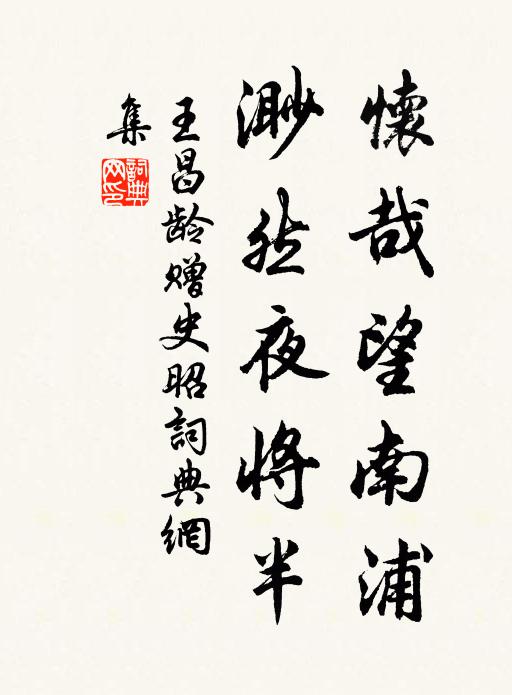 懷哉望南浦
渺然夜將半
王昌龄赠史昭詞典網
集
詞典网印